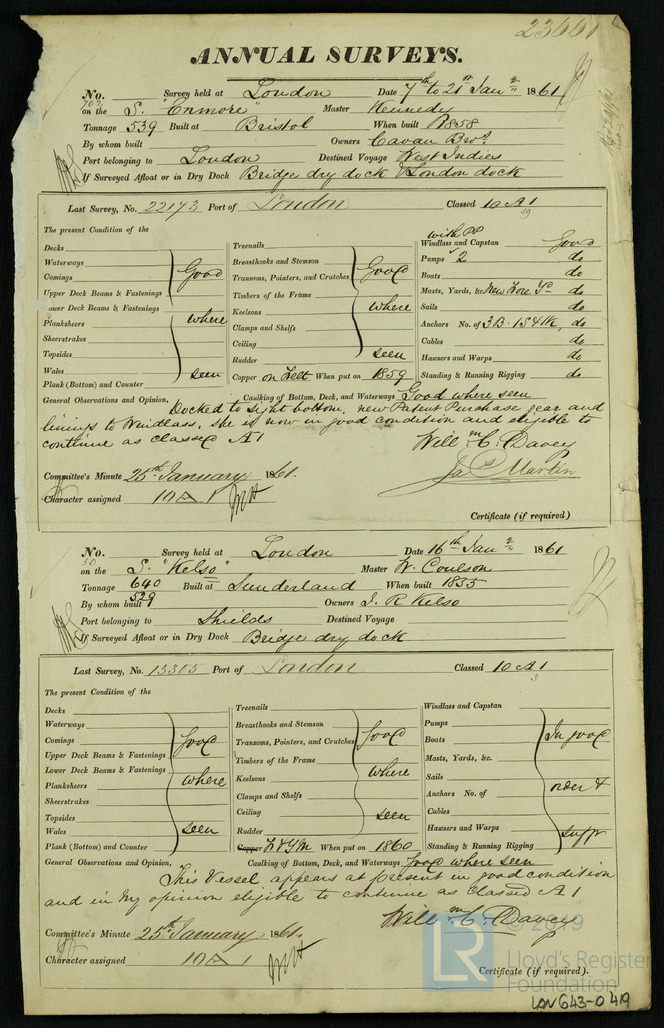 23661
ANNUAL SURVEYS.
No. Survey held at London Date 7th to 21st Jany 1861
702 on the S. "Enmore" Master Kennedy
Tonnage 539 Built at Bristol When built 1858
By whom built Owners Cavan Bros.
Port belonging to London Destined Voyage West Indies
If Surveyed Afloat or in Dry Dock Bridge dry dock & London dock
Last Survey, No. 22173 Port of London Classed 10 A 1
59
The present Condition of the
Decks
Waterways
Comings
Upper Deck Beams & Fastenings
Lower Deck Beams & Fastenings
Planksheers
Sheerstrakes
Topsides
Wales
Plank (Bottom) and Counter
Good
where
seen
Treenails
Breasthooks and Stemson
Transoms, Pointers, and Crutches
Timbers of the Frame
Keelsons
Clamps and Shelfs
Ceiling
Rudder
Good
where
seen
Copper on Felt When put on 1859
with PP
Windlass and Capstan Good
Pumps 2 do
Boats do
Masts, Yards, &c. New Fore Yd do
Sails do
Anchors No. of 3B. 1S 4K, do
Cables do
Hawsers and Warps do
Standing & Running Rigging do
General Observations and Opinion, Caulking of Bottom, Deck, and Waterways Good where seen
Docked to sight bottom, new Patent Purchase gear and
linings to Windlass, she is now in good condition and eligible to
continue as classed A1
Will m. C. Davey
Jas Martin
Committee's Minute 25th January 1861.
Character assigned 10 A 1
Certificate (if required)
No. Survey held at London Date 16th Jany 1861
50 on the S. "Kelso" Master W. Coulson
Tonnage 640 Built at Sunderland When built 1855
529
By whom built Owners J. R Kelso
Port belonging to Shields Destined Voyage
If Surveyed Afloat or in Dry Dock Bridge dry dock
Last Survey, No. 15305 Port of London Classed 10 A 1
The present Condition of the
Decks
Waterways
Comings
Upper Deck Beams & Fastenings
Lower Deck Beams & Fastenings
Planksheers
Sheerstrakes
Topsides
Wales
Plank (Bottom) and Counter
Good
where
seen
Treenails
Breasthooks and Stemson
Transoms, Pointers, and Crutches
Timbers of the Frame
Keelsons
Clamps and Shelfs
Ceiling
Rudder
Good
where
seen
Copper F & YM When put on 1860
Windlass and Capstan
Pumps
Boats
Masts, Yards, &c.
Sails
Anchors No. of
Cables
Hawsers and Warps
Standing & Running Rigging
In good
order &
sufft
General Observations and Opinion, Caulking of Bottom, Deck, and Waterways Good where seen
This Vessel appears at present in good condition
and in my opinion eligible to continue as classed A 1
Will m. C. Davey
Committee's Minute 25th January 1861.
Character assigned 10 A 1
Certificate (if required).
© 2019
LR
Lloyd's Register
Foundation
LON643-0419